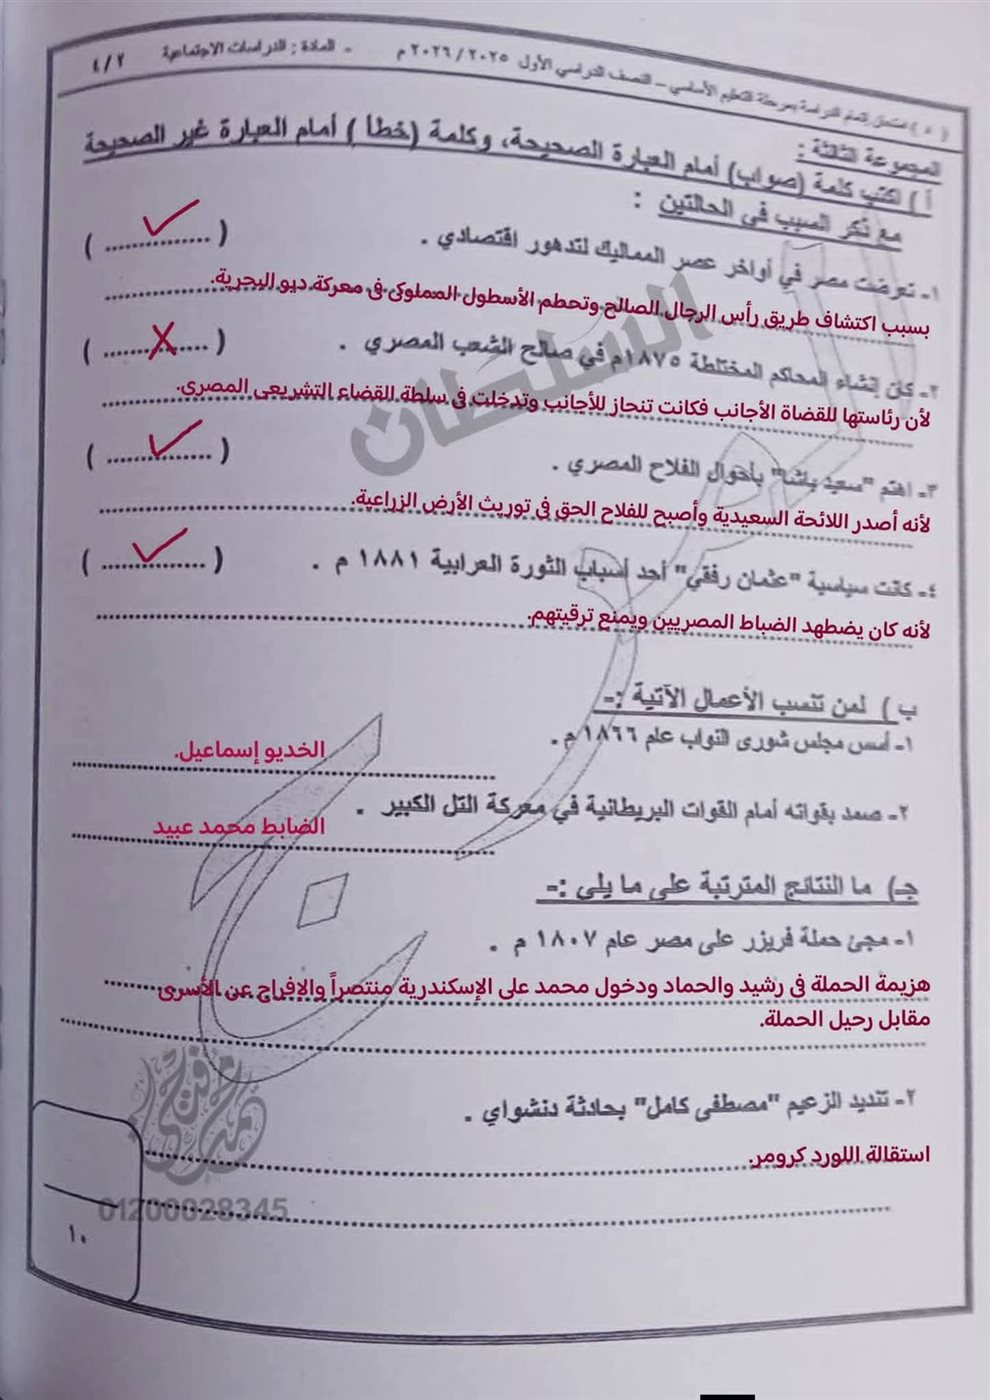 ( ٥ ) امتحان إتمام الدراسة بمرحلة التعليم الأساسي – النصف الدراسي الأول ٢٠٢٥ / ٢٠٢٦ م - المادة : الدراسات الاجتماعية ٤/٢
المجموعة الثالثة :
أ ) اكتب كلمة (صواب) أمام العبارة الصحيحة، وكلمة (خطأ ) أمام العبارة غير الصحيحة
مع ذكر السبب في الحالتين :
١- تعرضت مصر في أواخر عصر المماليك لتدهور اقتصادي . ( ............... )
بسبب اكتشاف طريق رأس الرجال الصالح وتحطم الأسطول المملوكى فى معركة ديو البحرية.
٢- كان إنشاء المحاكم المختلطة ١٨٧٥م في صالح الشعب المصري . ( ............... )
لأن رئاستها للقضاة الأجانب فكانت تنحاز للأجانب وتدخلت فى سلطة القضاء التشريعى المصرى.
٣- اهتم "سعيد باشا" بأحوال الفلاح المصري . ( ............... )
لأنه أصدر اللائحة السعيدية وأصبح للفلاح الحق فى توريث الأرض الزراعية.
٤- كانت سياسية "عثمان رفقي" أحد أسباب الثورة العرابية ١٨٨١ م . ( ............... )
لأنه كان يضطهد الضباط المصريين ويمنع ترقيتهم.
ب ) لمن تنسب الأعمال الآتية :-
١- أسس مجلس شورى النواب عام ١٨٦٦ م .
الخديو إسماعيل.
٢- صمد بقواته أمام القوات البريطانية في معركة التل الكبير .
الضابط محمد عبيد
جـ) ما النتائج المترتبة على ما يلي :-
١- مجئ حملة فريزر على مصر عام ١٨٠٧ م .
هزيمة الحملة فى رشيد والحماد ودخول محمد على الإسكندرية منتصراً والافراج عن الأسرى
مقابل رحيل الحملة.
٢- تنديد الزعيم "مصطفى كامل" بحادثة دنشواي .
استقالة اللورد كرومر.
01200028345
١٠
السلطان